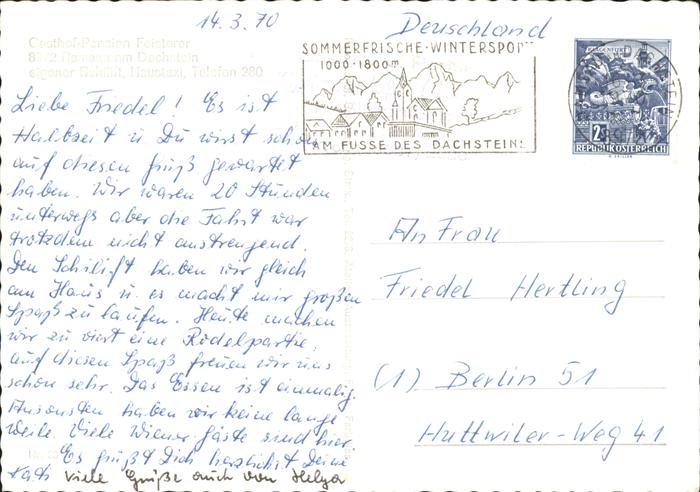 14.3.70
Deuschland
Gasthof-Pension Feisterer
8972 Ramsau am Dachstein
eigener Schilift, Haustaxi, Telefon 280
SOMMERFRISCHE·WINTERSPORT
1000·1800m
AM FUSSE DES DACHSTEINS
KLAGENFURT
2S
REPUBLIK ÖSTERREICH
Liebe Friedel! Es ist
Halbzeit u. Du wirst schon
auf diesen Gruß gewartet
haben. Wir waren 20 Stunden
unterwegs aber die Fahrt war
trotzdem nicht anstrengend.
Den Schilift haben wir gleich
am Haus u. es macht mir großen
Spaß zu laufen. Heute machen
wir zu viert eine Rodelpartie,
auf diesen Spaß freuen wir uns
schon sehr. Das Essen ist einmalig.
Ansonsten haben wir keine lange
weile. Viele Wiener Gäste sind hier.
Es grüßt Dich herzlichst Deine
Kath viele Grüße auch von Helga
An Frau
Friedel Hertling
(1) Berlin 51
Huttwiler-Weg 41